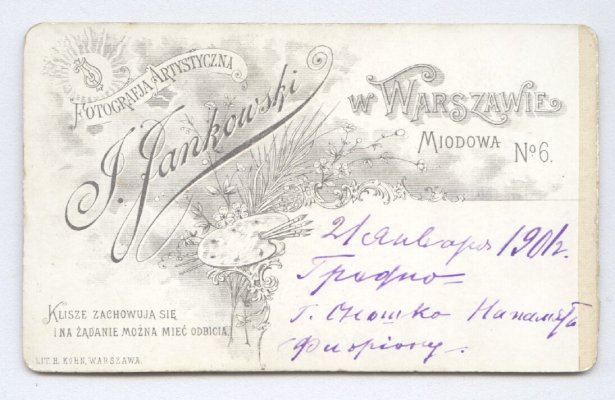 FOTOGRAFJA ARTYSTYCZNA
J. Jankowski
W WARSZAWIE
MIODOWA No 6.
21 Января 1901 г.
Гродно
Г.
KLISZE ZACHOWUJĄ SIĘ
I NA ŻĄDANIE MOŻNA MIEĆ ODBICIA
LIT. H. KOHN, WARSZAWA.